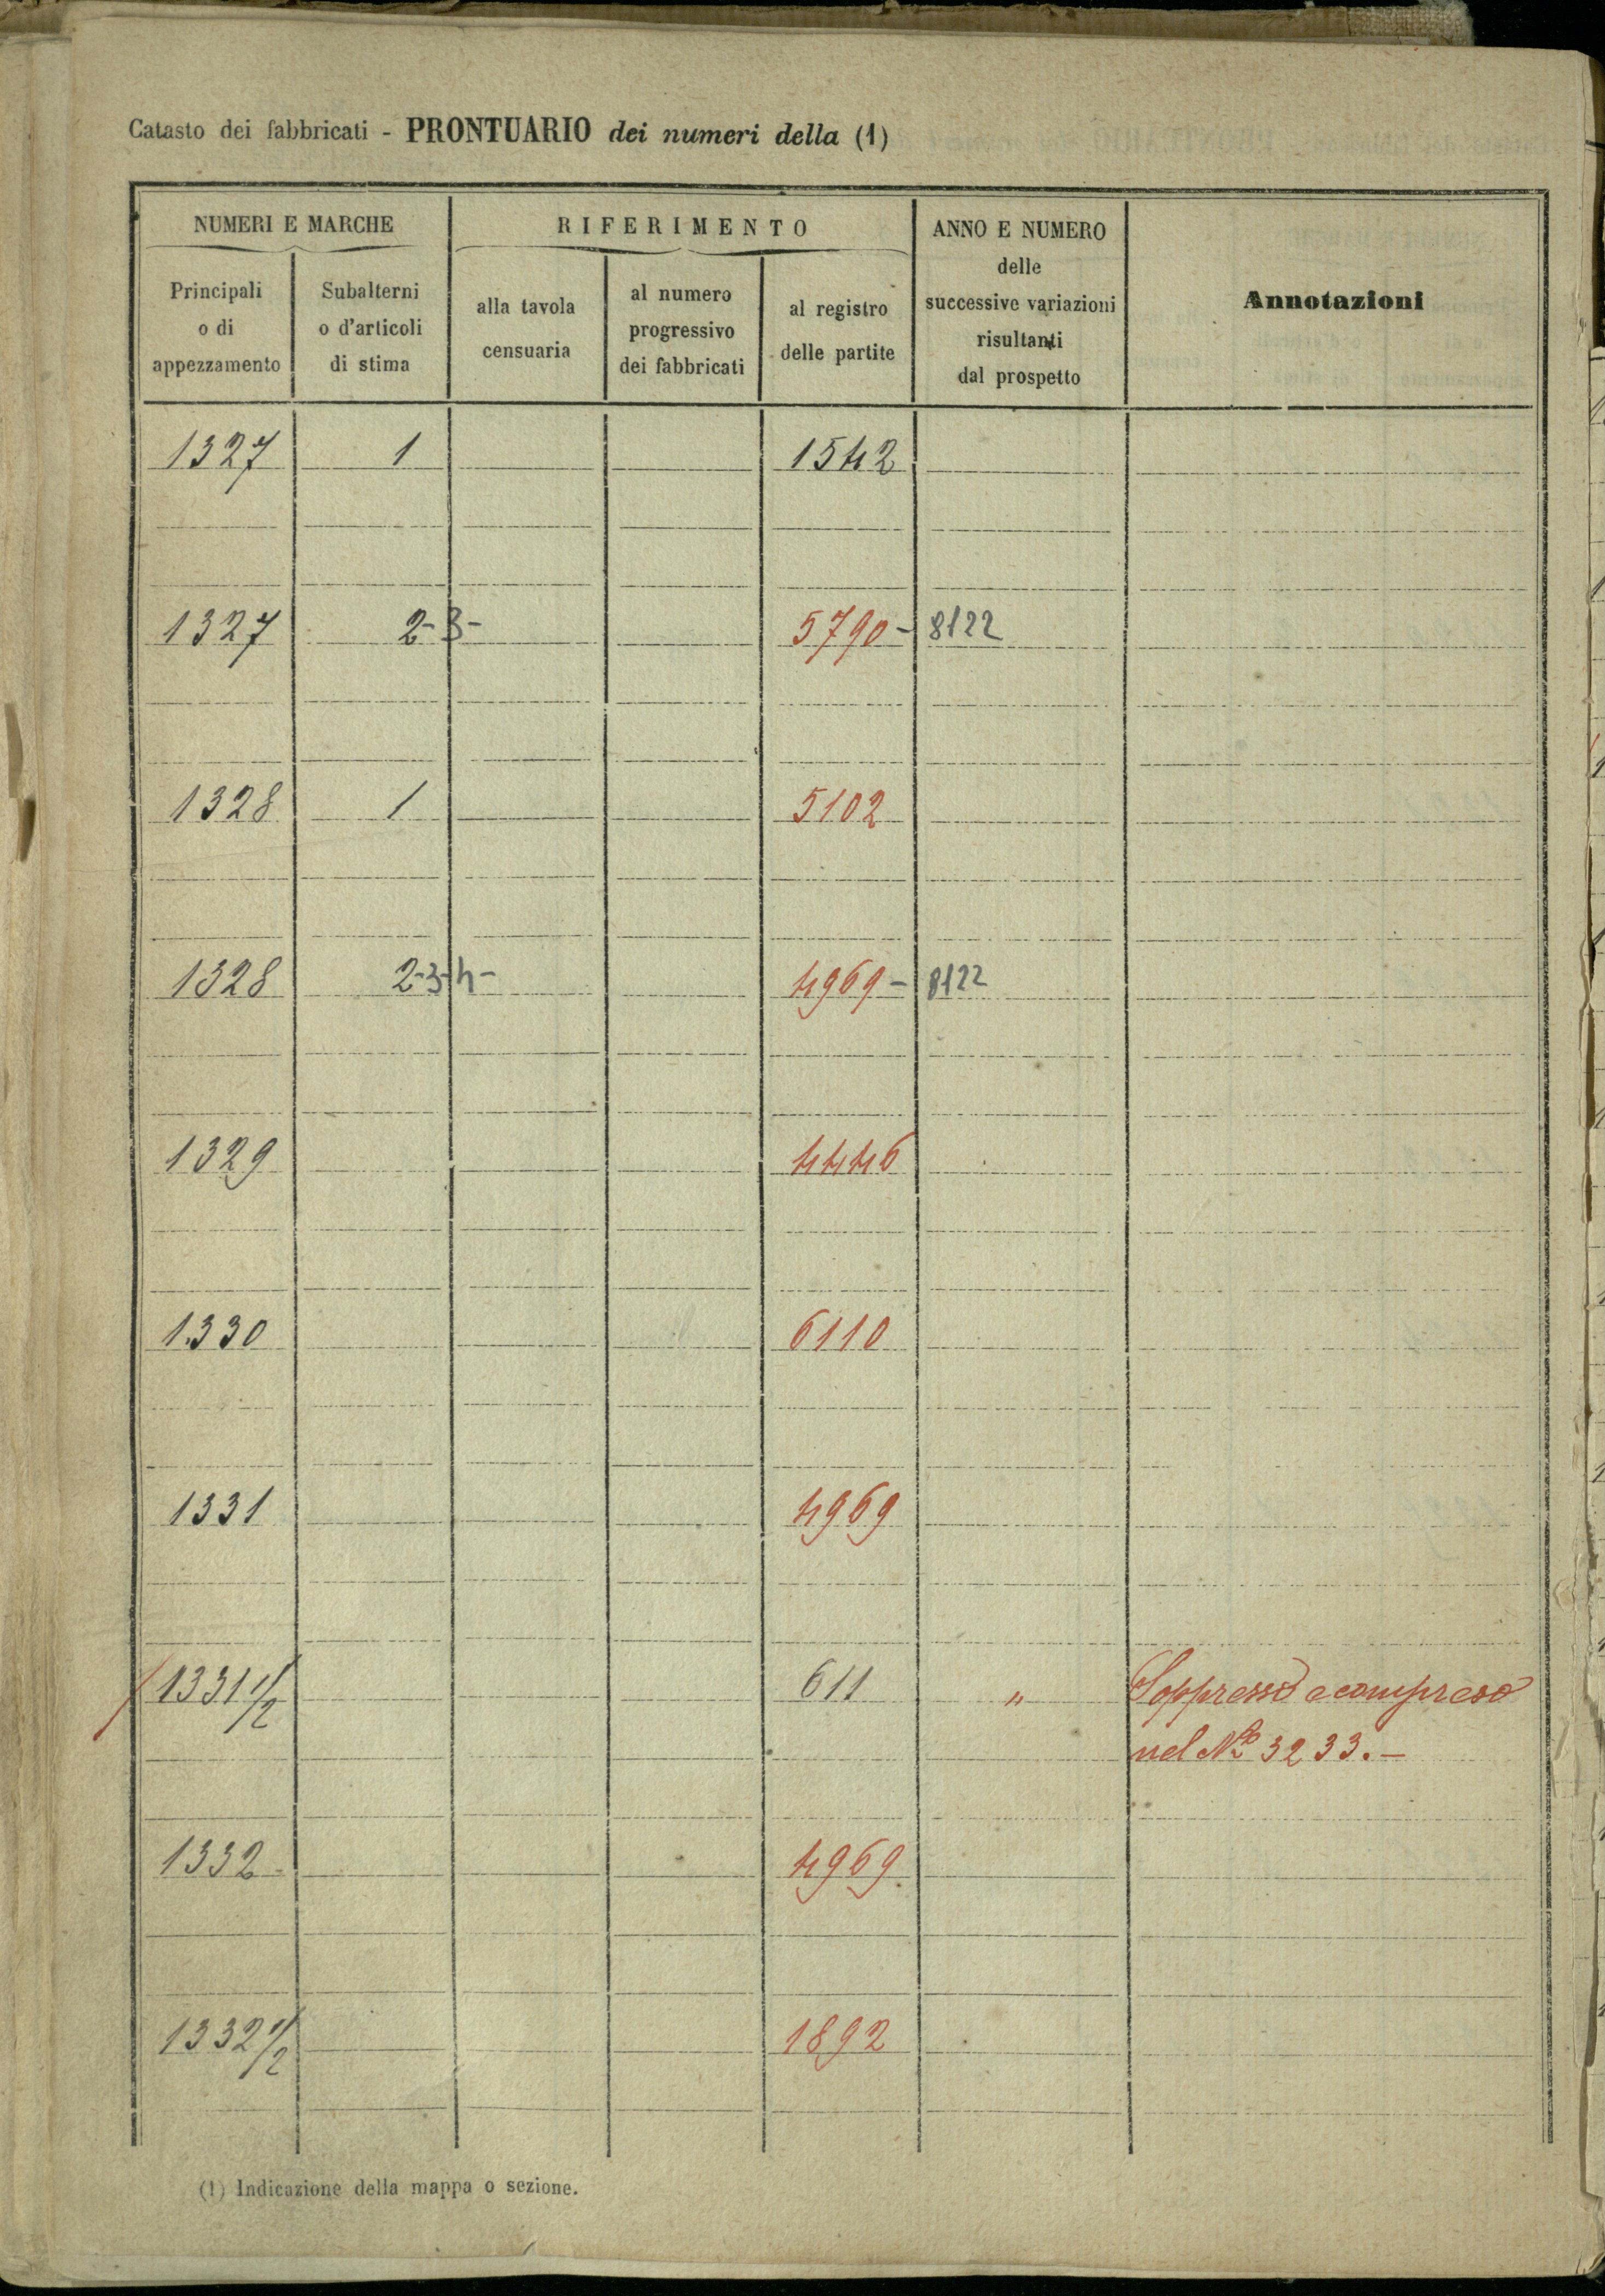 Catasto dei fabbricati - PRONTUARIO dei numeri della (1)
NUMERI E MARCHE
RIFERIMENTO
ANNO E NUMERO
delle
successive variazioni
risultanti
dal prospetto
Annotazioni
Principali
o di
appezzamento
Subalterni
o d'articoli
di stima
alla tavola
censuaria
al numero
progressivo
dei fabbricati
al registro
delle partite
1327 1 1542
1327 2-3- 5790- 8122
1328 1 5102
1328 2-3-4- 4969- 8122
1329 4446
1330 6110
1331 4969
1331 1/2 611 " Soppresso e compreso
nel No 3233.-
1332 4969
1332 1/2 1892
(1) Indicazione della mappa o sezione.